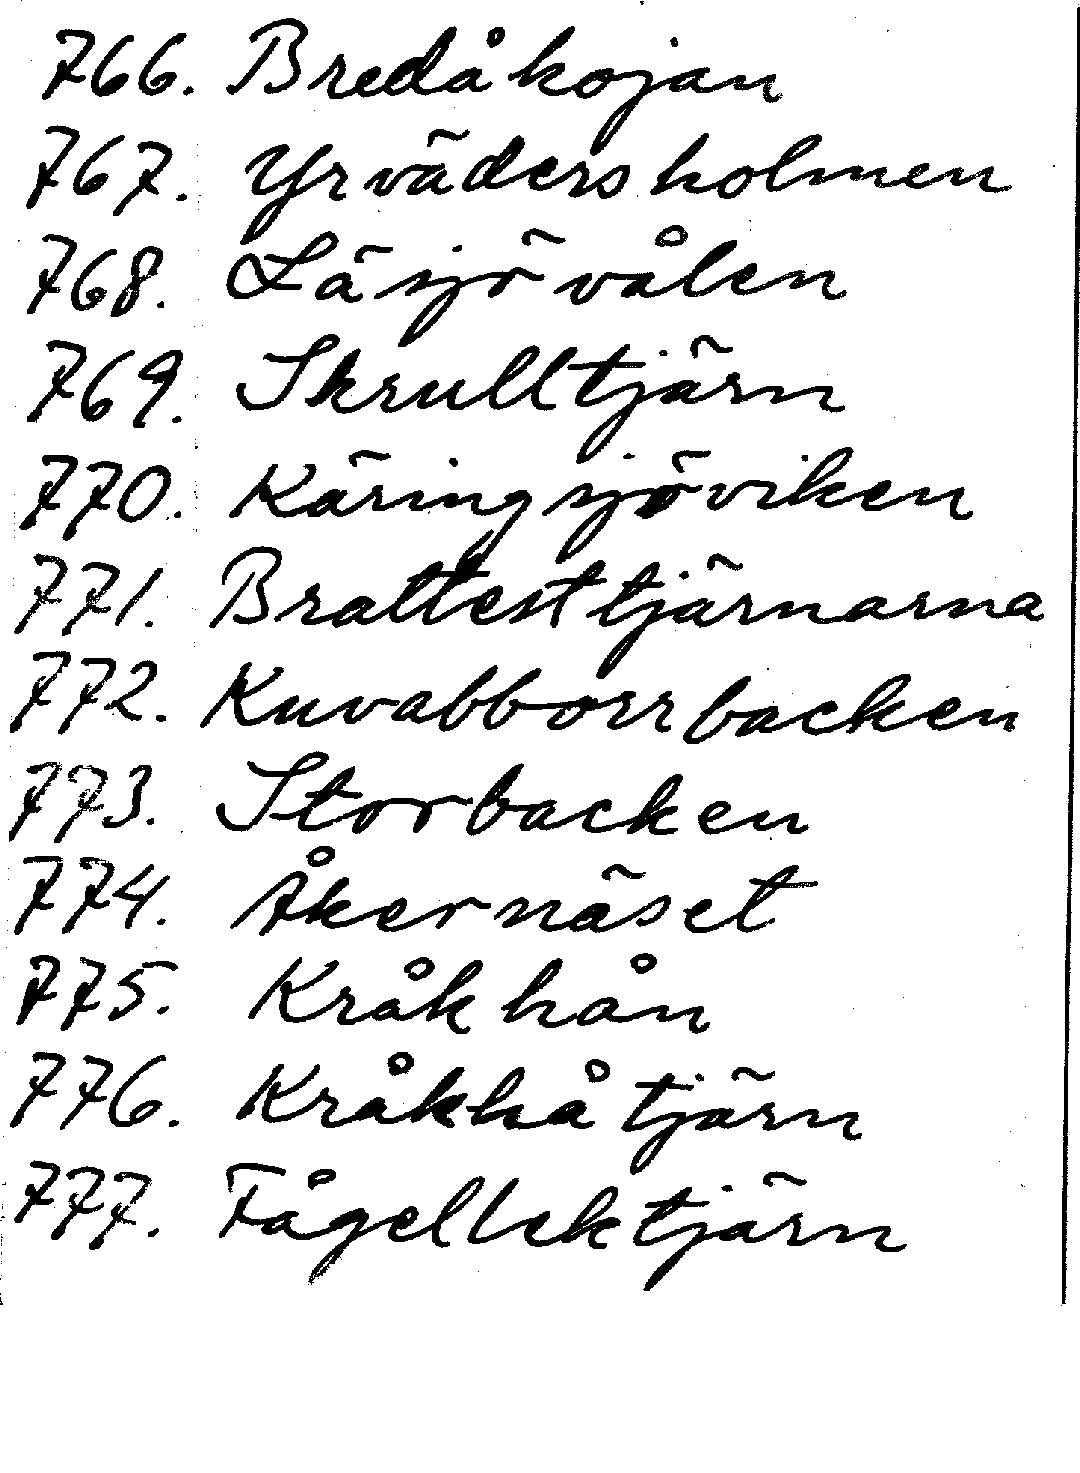 766. Bredåkojan
767. Yrvädersholmen
768. Läsjövålen
769. Skrulltjärn
770. Käringsjöviken
771. Brattesttjärnarna
772. Kuvabborrbacken
773. Storbacken
774. Åkernäset
775. Kråkhån
776. Kråkhåtjärn
777. Fågellektjärn